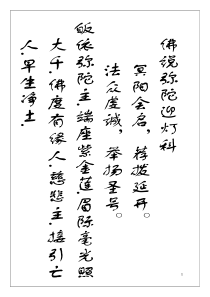 佛说弥陀迎灯科
冥阳会启,荐拨延开。
法众虔诚,举扬圣号。
皈依弥陀主.端座紫金莲.眉际毫光照
大千.佛度有缘人.慈悲主.接引亡
人.早生净土.